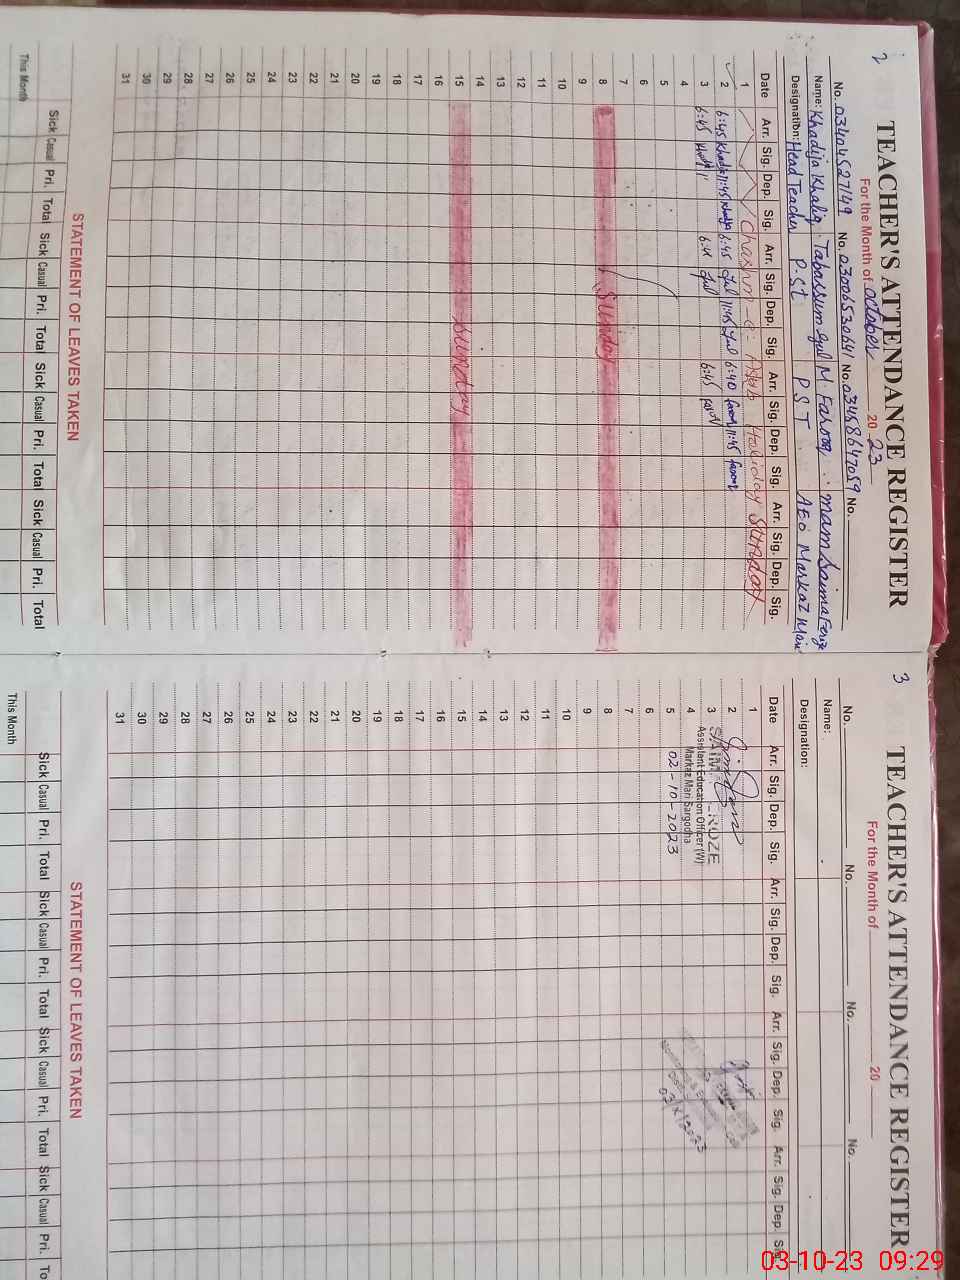 2
TEACHER'S ATTENDANCE REGISTER
For the Month of october 2023
No. 03404527149 No. 03006530641 No. 03458647059 No.
Name: Khadija Khaliq Tabassum Gul M. Farooq mam Saima Feroze
Designation: Head Teacher P.St P S T AEO Markaz Mari
Date Arr. Sig. Dep. Sig. Arr. Sig. Dep. Sig. Arr. Sig. Dep. Sig. Arr. Sig. Dep. Sig.
1 Chashm-e- Holiday Sunday
2 6:45 Khadija 11:45 Khadija 6:45 Gul 11:45 Gul 6:40 farooq 11:45 farooq
3 6:45 6:45 farooq
4
5
6
7
8 Sunday
9
10
11
12
13
14
15 Sunday
16
17
18
19
20
21
22
23
24
25
26
27
28
29
30
31
STATEMENT OF LEAVES TAKEN
Sick Casual Pri. Total Sick Casual Pri. Total Sick Casual Pri. Total Sick Casual Pri. Total
This Month
3
TEACHER'S ATTENDANCE REGISTER
For the Month of 20
No. No. No. No.
Name:
Designation:
Date Arr. Sig. Dep. Sig. Arr. Sig. Dep. Sig. Arr. Sig. Dep. Sig. Arr. Sig. Dep. Sig.
1
2
3
4
5
6
7
8
9
10
11
12
13
14
15
16
17
18
19
20
21
22
23
24
25
26
27
28
29
30
31
Assistent Education Officer (W)
Markaz Mari Sargodha
02-10-2023
STATEMENT OF LEAVES TAKEN
Sick Casual Pri. Total Sick Casual Pri. Total Sick Casual Pri. Total Sick Casual Pri. To
This Month
03-10-23 09:29